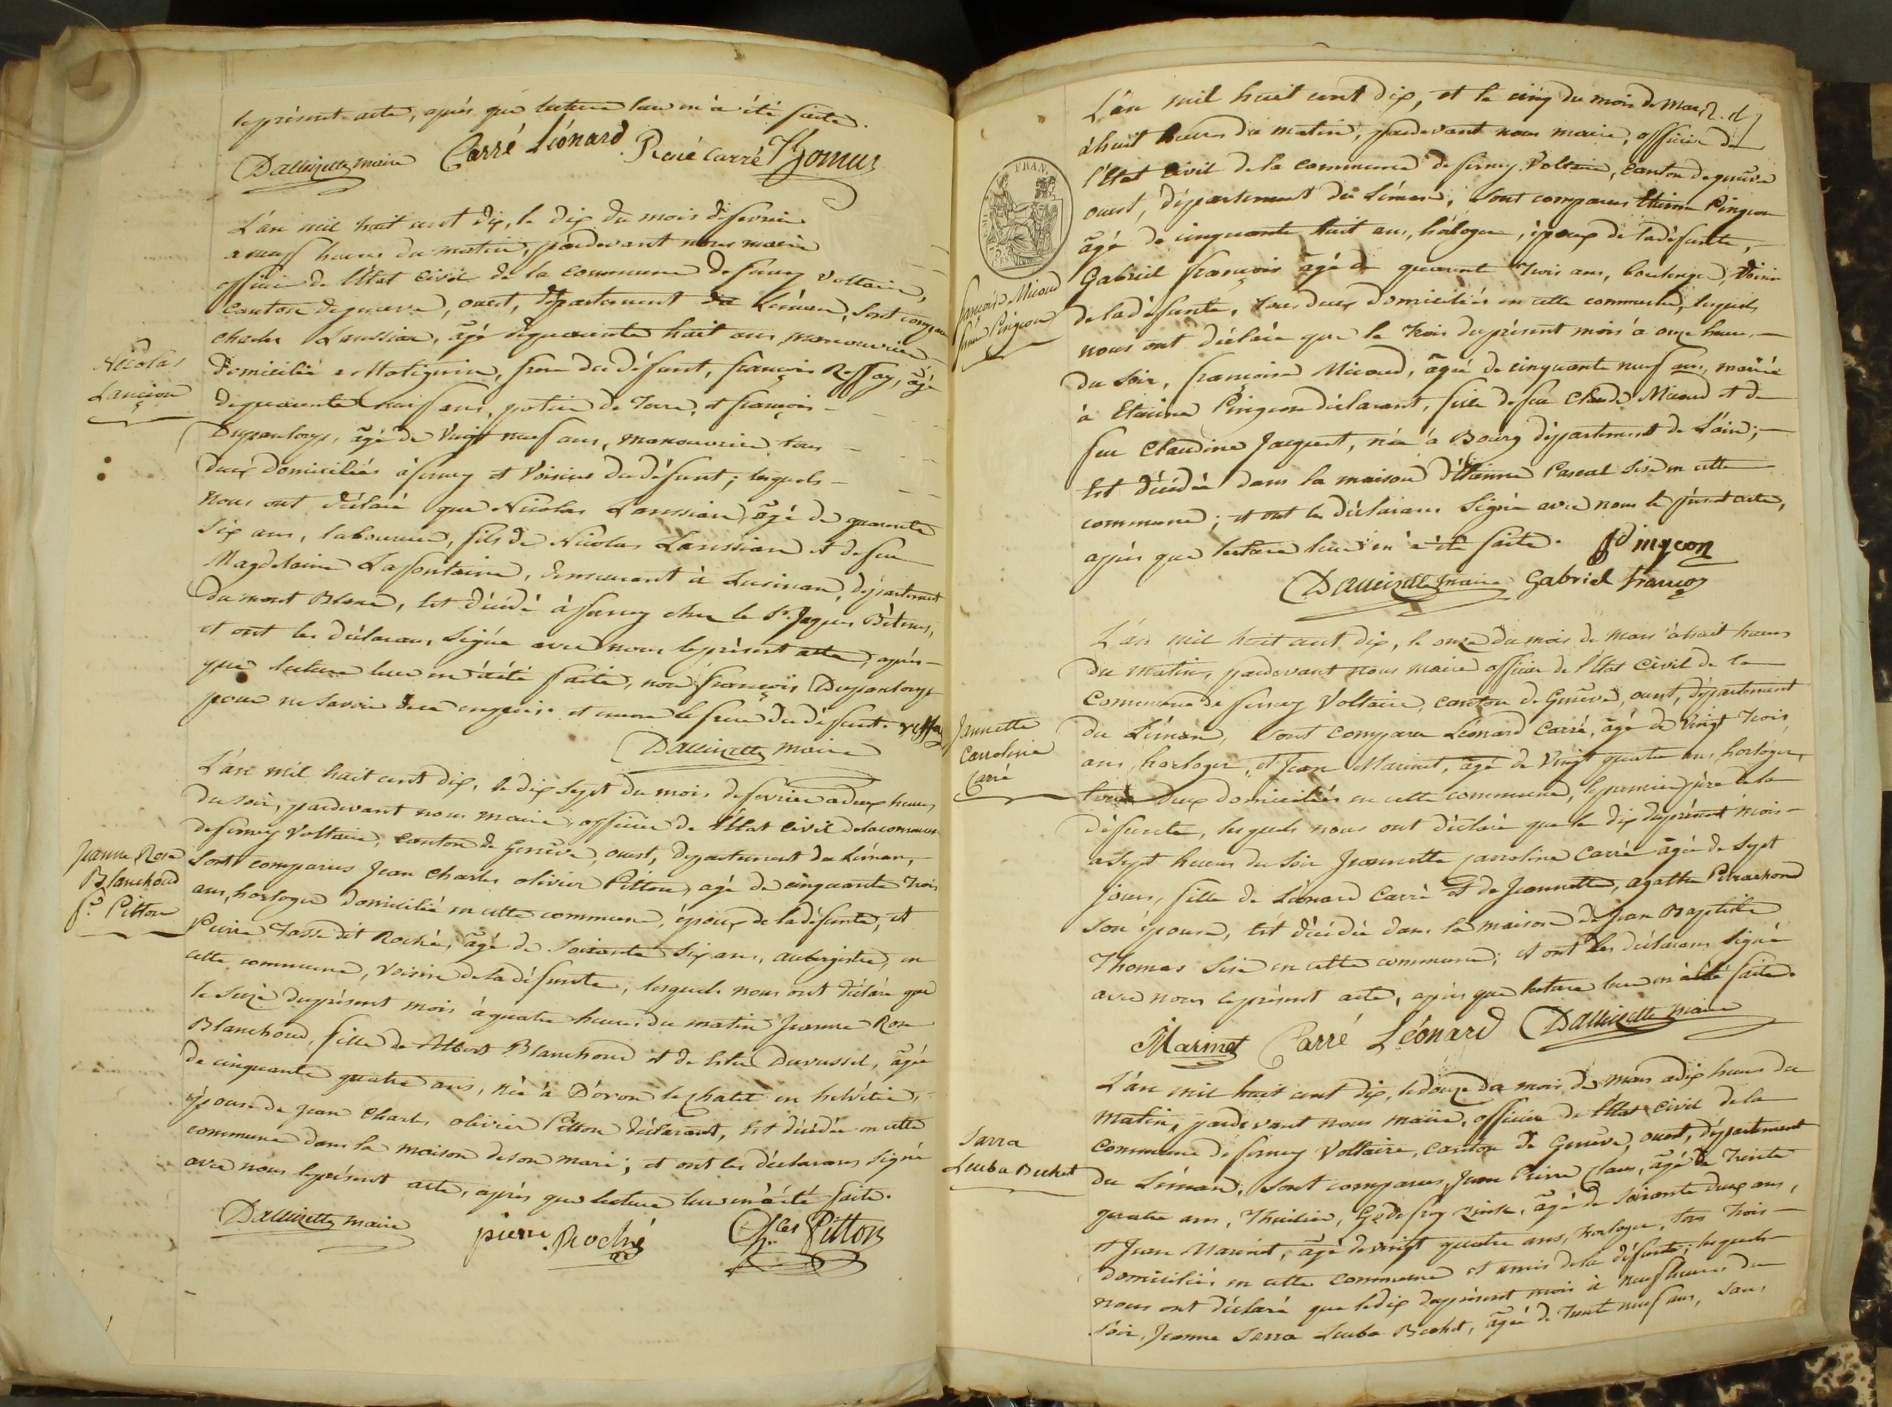 le présent acte, après que lecture leur en a été faite.
Dallizette maire Carré Léonard René Carré Thomas
L'an mil huit cent dix, le dix du mois de fevrier
a neuf heures du matin, pardevant nous maire
officier de l'État Civil de la commune de ferney Voltaire,
canton de geneve, ouest, département du Léman, sont comparus
charles Laussian, âgé de quarante huit ans, manouvrier
domicilié a Matignin, frere du défunt, françois Reffay, âgé
de quarante neuf ans, potier de Terre, et françois
Dupanloup, âgé de vingt neuf ans, manouvrier, tous
deux domiciliés à ferney et voisins du défunt; lesquels
nous ont déclaré que Nicolas Laussian, âgé de quarante
six ans, laboureur, fils de Nicolas Laussian et de feu
Magdelaine Lafontaine, demeurant à Lusinan, département
du mont Blanc, est décédé à ferney chez le Sr. Jaques Bétems,
et ont les déclarans signés avec nous le présent acte, après
que lecture leur en a été faite, non françois Dupanloup
pour ne savoir de ce enquis et encore le frere du défunt. reffay
Dallizette maire
Nicolas
Laucian
L'an mil huit cent dix, le dix sept du mois de fevrier a deux heures
du soir, pardevant nous maire, officier de l'État Civil de la commune
de ferney Voltaire, canton de Genève, ouest, département du Léman,
sont comparus Jean Charles olivier Pitton, agé de cinquante trois
ans, horloger domicilié en cette commune, époux de la défunte, et
Pierre Tasse dit Roché, âgé de soixante six ans, aubergiste, en
cette commune, voisin de la défunte, lesquels nous ont déclaré que
le seize du présent mois à quatre heures du matin Jeanne Rose
Blanchoud, fille de Albert Blanchoud et de Ester Duvussel, âgée
de cinquante quatre ans, née à D'oron le chatel en helvétie,
épouse de Jean Charles olivier Pitton déclarant, est décédée en cette
commune dans la maison de son mari; et ont les déclarans signé
avec nous le présent acte, après que lecture leur en a été faite.
Dallizette maire pierre Roché Chles Pitton
Jeanne Rose
Blanchoud
fe. Pitton
L'an mil huit cent dix, et le cinq du mois de mars,
à huit heures du matin, pardevant nous maire, officier de
l'État Civil de la commune de ferney Voltaire, canton de genève
ouest, département du Léman, sont comparus Etienne Pingeon
âgé de cinquante huit ans, horloger, époux de la défunte,
Gabriel françois âgé de quarante trois ans, boulanger, voisin
de la défunte, tous deux domiciliés en cette commune, lesquels
nous ont déclaré que le trois du présent mois à onze heures
du soir, françoise Micoud, âgée de cinquante neuf ans, mariée
à Etienne Pingeon déclarant, fille de feu Claude Micoud et de
feu Claudine Jacquet, née à Bourg département de L'ain;
est décédée dans la maison d'Étienne Pascal sise en cette
commune; et ont les déclarans signé avec nous le présent acte,
après que lecture leur en a été faite. Pingeon
Dallizette maire Gabriel françois
FRAN.
françoise Micoud
fme Pingeon
L'an mil huit cent dix, le onze du mois de mars à huit heures
du matin, pardevant nous maire officier de l'État Civil de la
commune de ferney Voltaire, canton de Genève, ouest, département
du Léman, sont comparus Léonard Carré, âgé de vingt trois
ans, horloger, et Jean Marinet, âgé de vingt quatre ans, horloger,
tous deux domiciliés en cette commune, le premier père de la
défunte, lesquels nous ont déclaré que le dix du présent mois
a sept heures du soir Jeannette Carroline Carré âgée de sept
jours, fille de Léonard Carré et de Jeannette, agathe Perrachoud
son épouse, est décédée dans la maison de Jean Baptiste
Thomas sise en cette commune; et ont les déclarans signé
avec nous le présent acte, après que lecture leur en a été faite.
Marinet Carré Léonard Dallizette maire
Jannette
Carroline
Carré
L'an mil huit cent dix, le douze du mois de mars a dix heures du
matin, pardevant nous maire, officier de l'État Civil de la
commune de ferney Voltaire, canton de Genève, ouest, département
du Léman, sont comparus, Jean Pierre Claus, âgé de trente
quatre ans, Thuilier, Godefroy Zinck, âgé de soixante deux ans,
et Jean Marinet, âgé de vingt quatre ans, horloger, tous trois
domiciliés en cette commune et amis de la défunte; lesquels
nous ont déclaré que le dix du présent mois à neuf heures du
soir, Jeanne Sarra Leuba Bechet, âgée de trente neuf ans, sans
Sarra
Leuba Bechet